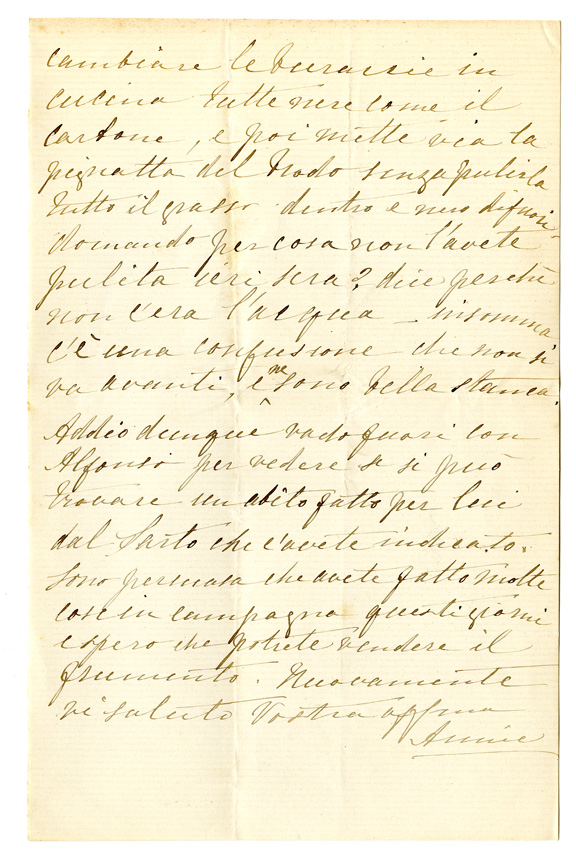 cambiare le buracsie in
cucina tutte nere come il
carbone, e poi mette via la
pignatta del brodo senza pulirla
tutto il grasso dentro e nero difuori
domando per cosa non l'avete
pulita ieri sera? dice perchè
non c'era l'acqua – insomma
c'è una confusione che non si
va avanti, e ne sono bella stanca.
Addio dunque vado fuori con
Alfonso per vedere se si può
trovare un abito fatto per lui
dal Sarto che l'avete indicato.
Sono persuasa che avete fatto molte
cose in campagna questi giorni
e spero che potrete vendere il
frumento. Nuovamente
vi saluto Vostra affma
Annie